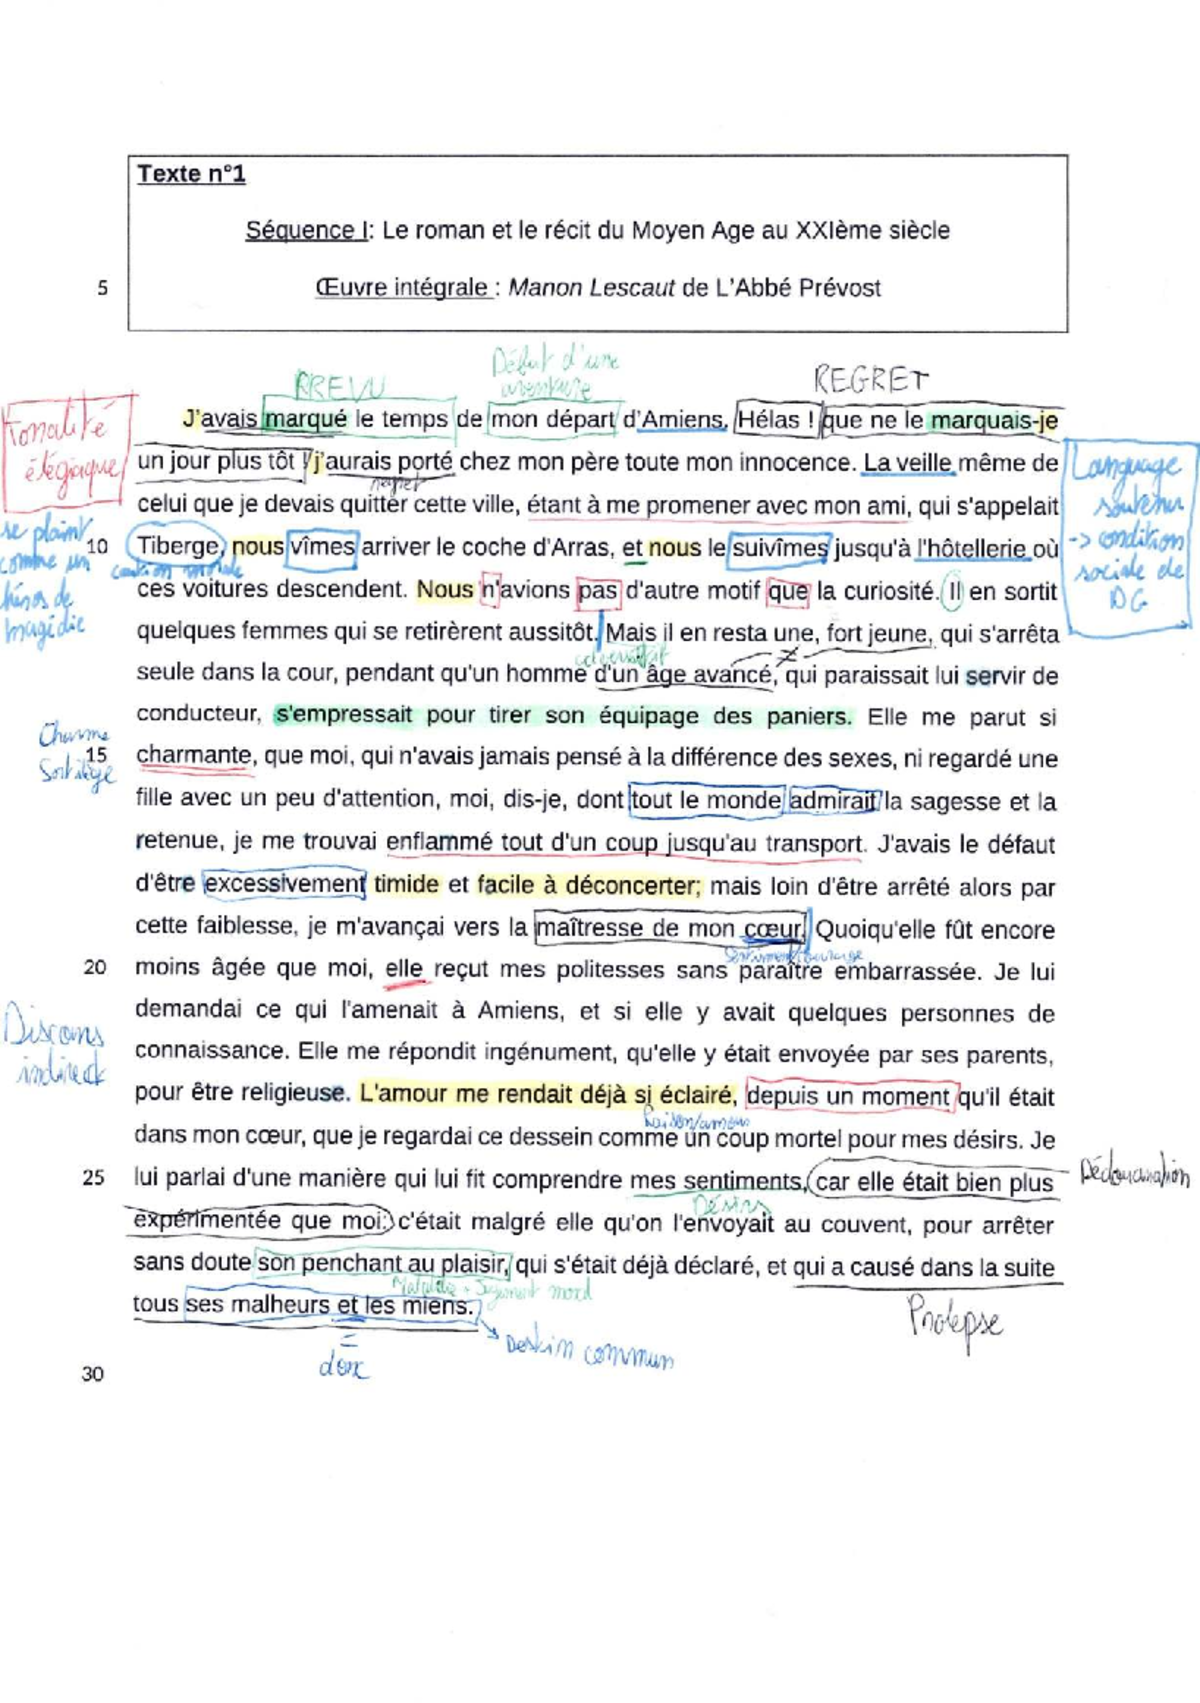 Texte n°1
Séquence I: Le roman et le récit du Moyen Age au XXIème siècle
5
Œuvre intégrale : Manon Lescaut de L'Abbé Prévost
Début d'une
aventure
PREVU
REGRET
Tonalité
élégiaque
J'avais marqué le temps de mon départ d'Amiens. Hélas ! que ne le marquais-je
un jour plus tôt ! j'aurais porté chez mon père toute mon innocence. La veille même de
regret
Language
soutenu
-> condition
sociale de
DG
celui que je devais quitter cette ville, étant à me promener avec mon ami, qui s'appelait
se plaint
comme un
héros de
tragédie
10
Tiberge, nous vîmes arriver le coche d'Arras, et nous le suivîmes jusqu'à l'hôtellerie où
caution morale
ces voitures descendent. Nous n'avions pas d'autre motif que la curiosité. Il en sortit
quelques femmes qui se retirèrent aussitôt. Mais il en resta une, fort jeune, qui s'arrêta
adversatif
≠
seule dans la cour, pendant qu'un homme d'un âge avancé, qui paraissait lui servir de
conducteur, s'empressait pour tirer son équipage des paniers. Elle me parut si
Charme
Sortilège
15
charmante, que moi, qui n'avais jamais pensé à la différence des sexes, ni regardé une
fille avec un peu d'attention, moi, dis-je, dont tout le monde admirait la sagesse et la
retenue, je me trouvai enflammé tout d'un coup jusqu'au transport. J'avais le défaut
d'être excessivement timide et facile à déconcerter; mais loin d'être arrêté alors par
cette faiblesse, je m'avançai vers la maîtresse de mon cœur. Quoiqu'elle fût encore
20
moins âgée que moi, elle reçut mes politesses sans paraître embarrassée. Je lui
demandai ce qui l'amenait à Amiens, et si elle y avait quelques personnes de
Discours
indirect
connaissance. Elle me répondit ingénument, qu'elle y était envoyée par ses parents,
pour être religieuse. L'amour me rendait déjà si éclairé, depuis un moment qu'il était
Raison/amour
dans mon cœur, que je regardai ce dessein comme un coup mortel pour mes désirs. Je
25
lui parlai d'une manière qui lui fit comprendre mes sentiments, car elle était bien plus
Désirs
expérimentée que moi: c'était malgré elle qu'on l'envoyait au couvent, pour arrêter
sans doute son penchant au plaisir, qui s'était déjà déclaré, et qui a causé dans la suite
Jugement moral
tous ses malheurs et les miens.
Prolepse
=
donc
Destin commun
30